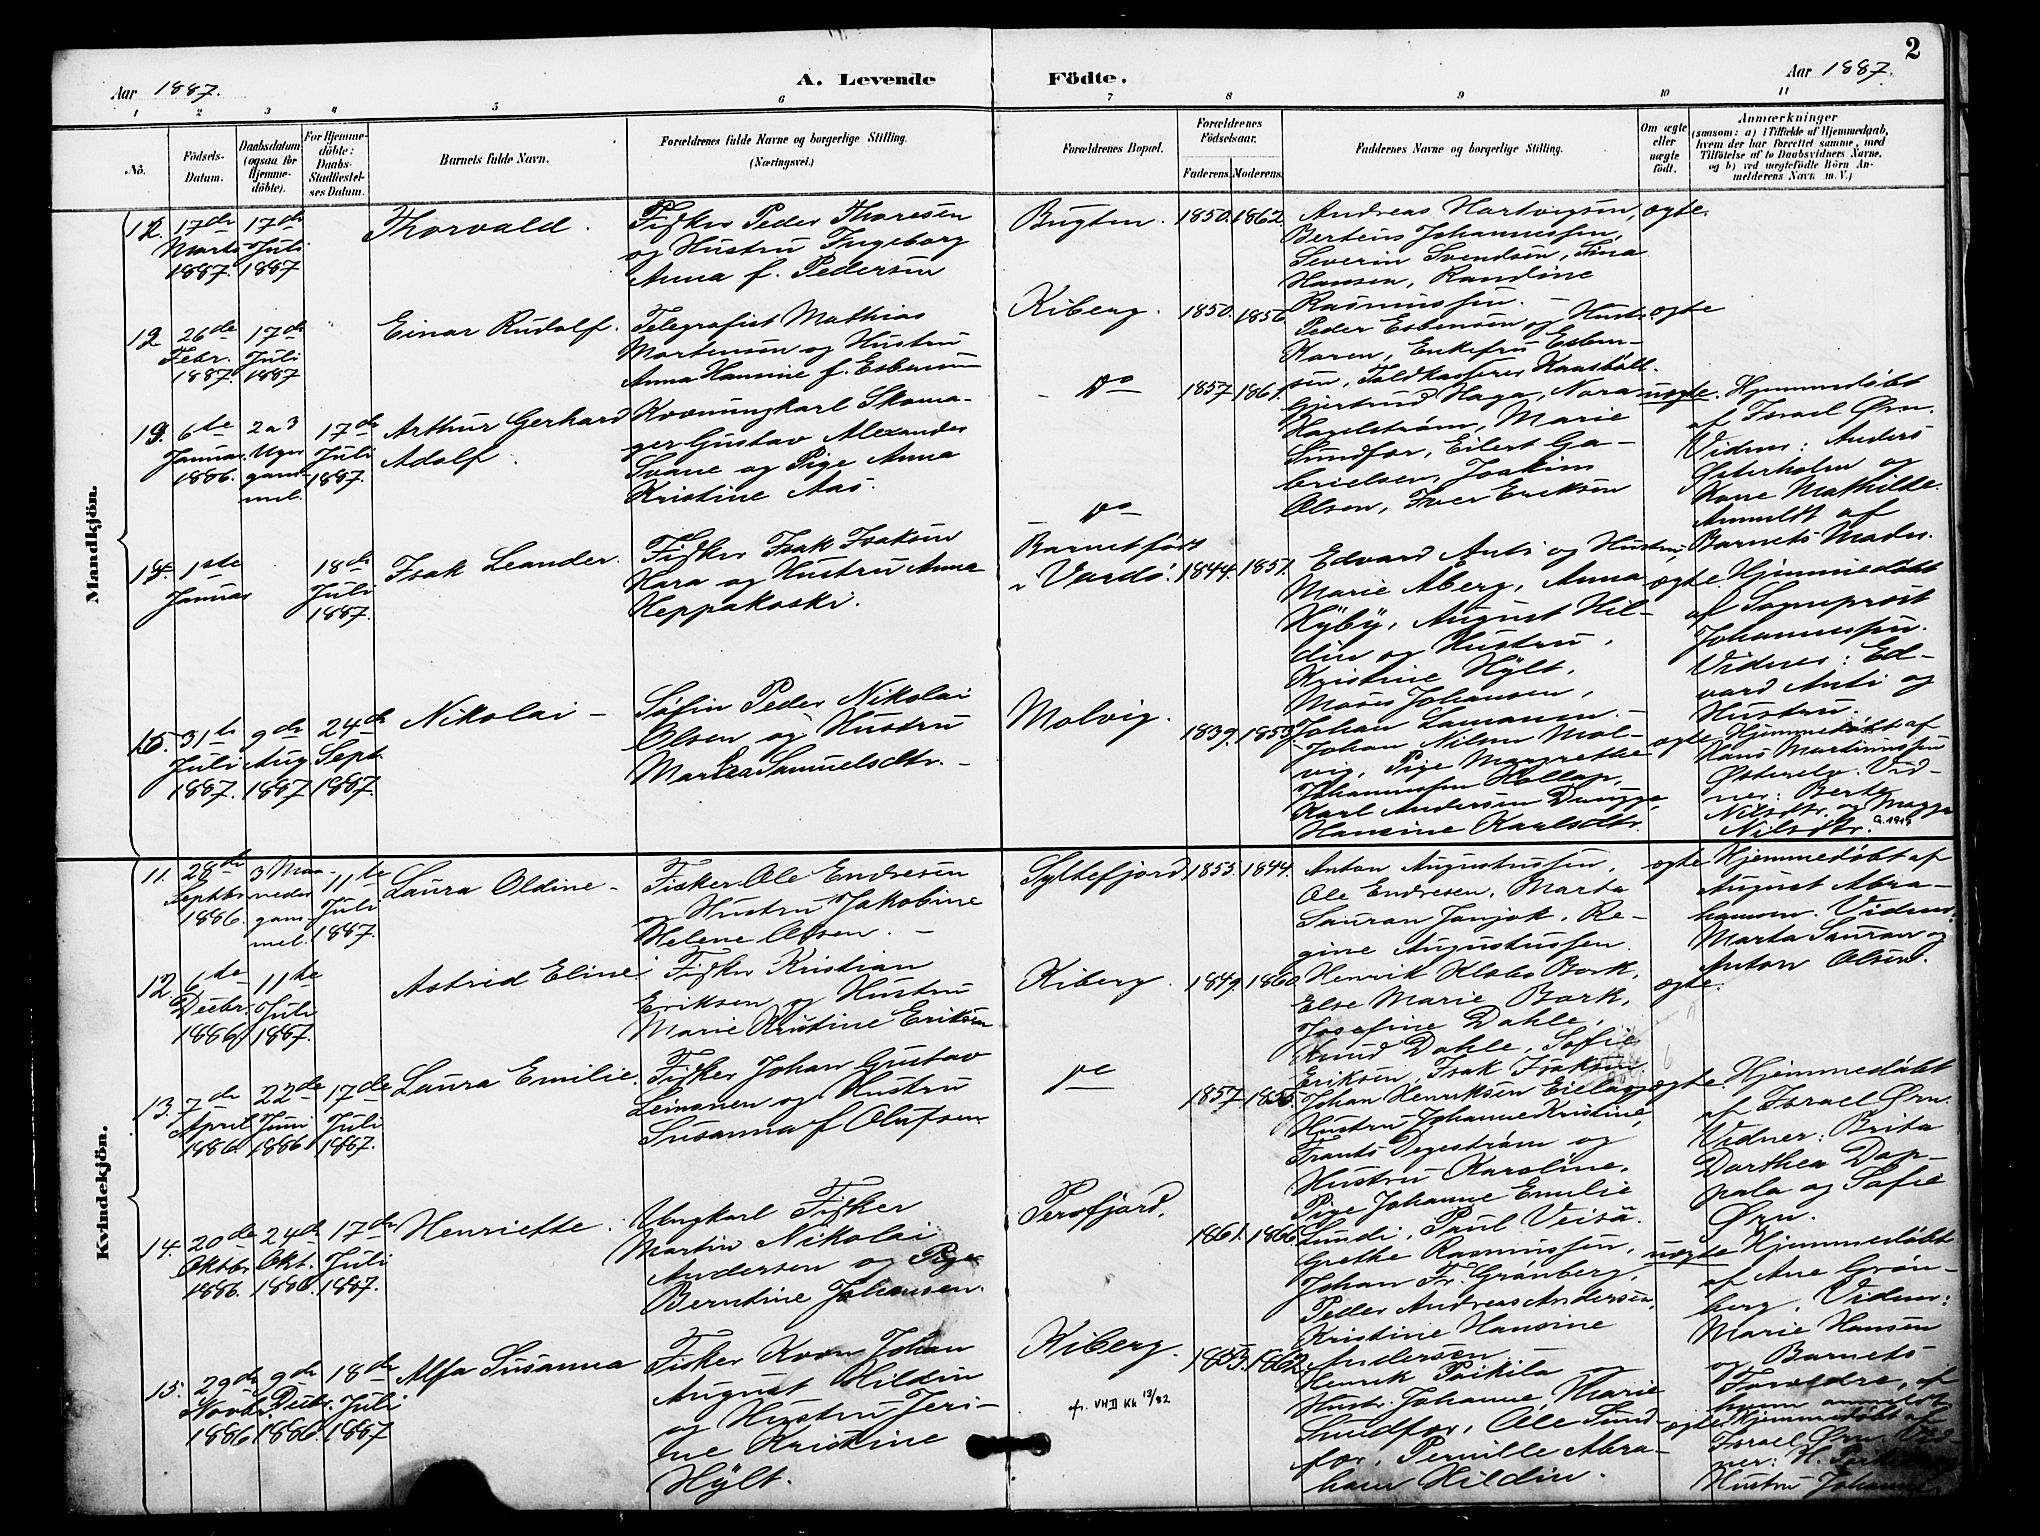 2
Aar 1887.
A. Levende Födte.
Aar 1887.
1 2 3 4 5 6 7 8 9 10 11
No.
Födsels-
Datum.
Daabsdatum
(ogsaa for
Hjemme-
döbte).
For Hjemme-
döbte:
Daabs-
Stadfæstel-
ses Datum.
Barnets fulde Navn.
Forældrenes fulde Navne og borgerlige Stilling.
(Næringsvei.)
Forældrenes Bopæl.
Forældrenes
Födselsaar.
Faderens. Moderens.
Faddernes Navne og borgerlige Stilling.
Om ægte
eller
uægte
födt.
Anmærkninger
(saasom: a) i Tilfælde af Hjemmedaab,
hvem der har forrettet samme, med
Tilföielse af to Daabsvidners Navne,
og b) ved uægtefödte Börn An-
melderens Navn m. V.)
Mandkjön.
12. 17de
Marts
1887.
17de
Juli
1887
Thorvald.
Fisker Peder Thoresen
og Hustru Ingeborg
Anna f. Pedersen
Bugten.
1850. 1862.
Andreas Hartvigsen,
Berteus Johannessen,
Severin Svendsen, Sina
Hansen, Randine
Rasmussen. –
ægte.
12 26de
Febr.
1887.
17de
Juli
1887
Einar Rudolf.
Telegrafist Mathias
Mortensen og Hustru
Anna Hansine f. Esbensen
Kiberg.
1850. 1856
Peder Esbensen og Hustr.
Karen, Enkefru Esben-
sen, Toldkasserer Kaasböll.
ægte
19. 6te
Januar
1886.
2 a 3
Uger
gam-
mel.
17de
Juli
1887.
Arthur Gerhard
Adolf.
Kvænungkarl Skoma-
ger Gustav Alexander
Svane og Pige Anna
Kristine Aas.
Do
1857 1861.
Gjertrud Haga, Nora
Hagelström, Marie
Sundfor, Eilert Ga-
brielsen, Joakim
Olsen, Iver Eriksen
uægte.
Hjemmedöbt
af Israel Ørn.
Vidner: Anders
Østerholm og
Kone Mathilde.
Anmeldt af
Barnets Moder.
1ste
Januar
18de
Juli
1887.
Isak Leander.
Fisker Isak Isaksen
Hara og Hustru Anna
Heppakoski.
Do
Barnet födt
i Vardö.
1844. 1857.
Edvard Anti og Hustru
Marie Aberg, Anna
Hyby, August Hil-
din og Hustru,
Kristine Hylt.
Moses Johansen,
Johan Lamanen. –
ægte
Hjemmedöbt
af Sogneprest
Johannessen.
Vidner: Ed-
vard Anti og
Hustru.
31te
Juli
1887.
9de
Aug
1887
24de
Sept.
1887.
Nikolai –
Söfin Peder Nikolai
Olsen og Hustru
Samuelsdtr. –
Molvig.
1839. 1853.
Johan Nilsen Mol-
vig, Pige Margrethe
Johannessen
Karl Andersen
Hansine Karlsdtr.
ægte
Hjemmedöbt af
Hans Martinussen
Østerelv. Vid-
ner: Berte
Nilsdtr. og Magga
Nilsdtr. G. 1919
Kvindekjön.
11. 28de
Septbr.
1886.
3 Maa-
neder
gam-
mel.
11te
Juli
1887.
Laura Oldine –
Fisker Ole Endresen
og Hustru Jakobine
Helene Olsen. –
Syltefjord
1853. 1844.
Anton Augustussen,
Ole Endresen, Marta
Sauran Janjok, Re-
gine Augustussen.
ægte
Hjemmedöbt af
August Abra-
hamsen. Vidner:
Marta Sauran og
Anton Olsen.
12. 6te
Decbr.
1886.
11te
Juli
1887.
Astrid Eline
Fisker Kristian
Eriksen og Hustru
Marie Kristine Eriksen
Kiberg.
1849. 1860.
Henrik Klebo Bork,
Else Marie Bork,
Josefine Dahle,
Knud Dahle, Sofie
Eriksen, Isak Isaksen
ægte.
13. 7de
April
1886.
22de
Juni
1886
17de
Juli
1887.
Laura Emilie.
Fisker Johan Gustav
Leinonen og Hustru
Susanna f Olufsen.
Do
1857
Johan Henriksen Eiela og
Hustru Johanne Kristine,
Frants Degerström og
Hustru Karoline,
Pige Johanne Emilie
Lundi, Paul Veisä.
ægte
Hjemmedöbt
af Israel Ørn.
Vidner: Brita
Dorthea Dap-
pala og Sofie
Ørn.
14. 20de
Oktbr.
1886.
24de
Okt.
1886.
17de
Juli
1887.
Henriette.
Ungkarl Fisker
Martin Nikolai
Andersen og Pige
Berntine Johansen.
Persfjord.
1861. 1866.
Grethe Rasmussen,
Johan Fr. Grönberg,
Peder Andreas Andersen,
Kristine Hansine
Andersen
uægte
Hjemmedöbt
af Ane Grön-
berg. Vidner:
Marie Hansen
og Barnets
Forældre, af
hvem anmeldt
15. 29de
Novbr.
1886
9de
Decbr.
1886.
18de
Juli
1887
Alfa Susanna
Fisker Kvæn Johan
August Hildin
og Hustru Jeri-
ne Kristine
Hylt.
Kiberg.
fr. VHD Kh 13/82
1853. 1862.
Henrik Poikila og
Hustr. Johanne, Marie
Sundfor, Ole Sund-
for, Pernille Abra-
ham Hildin.
ægte
Hjemmedöbt af
Israel Ørn. Vid-
ner: H. Poikila og
Hustru Johanne.